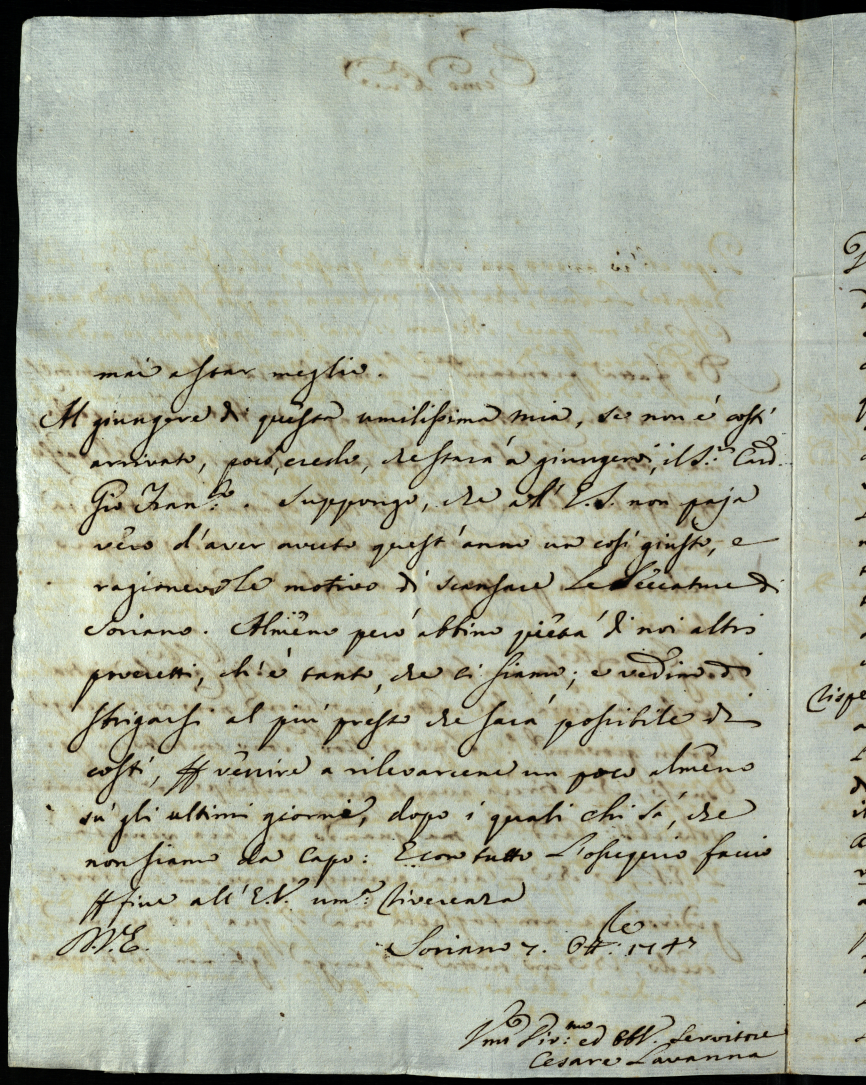 mai a star meglio.
Al giungere di questa umilissima mia, se non è costì
arrivato, poco, credo, che starà a giungervi, il S.r Card.
Gio Fran.co. Suppongo, che all'E.S. non paja
vero d'aver avuto quest'anno un così giusto, e
ragionevole motivo di scansare le seccature di
Soriano. Almeno però abbino pietà di noi altri
poveretti, ch'è tanto, che ci siamo; e vedino di
sbrigarsi al più presto che sarà possibile di
costì, p venire a rilevarcene un poco almeno
sù gli ultimi giorni, dopo i quali chi sà, che
non siamo da capo: E con tutto l'ossequio faccio
p fine all'E.V. um.a riverenza
D.V.E. Soriano 7. Ott.re 1747
Umo Div.mo ed Obb. Servitore
Cesare Lavanna